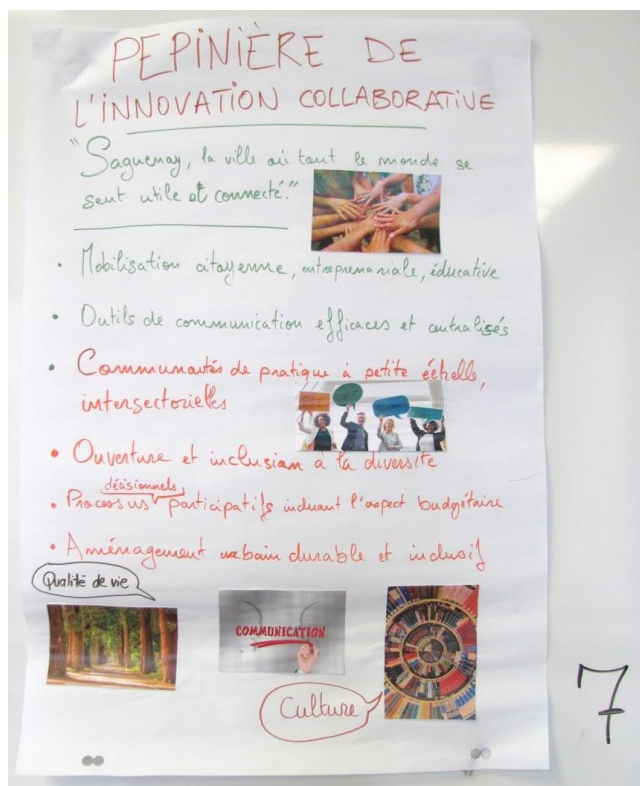 PEPINIÈRE DE
L'INNOVATION COLLABORATIVE
"Saguenay, la ville où tout le monde se
sent utile et connecté."
• Mobilisation citoyenne, entreprenariale, éducative
• Outils de communication efficaces et centralisés
• Communautés de pratique à petite échelle,
intersectorielles
• Ouverture et inclusion à la diversité
décisionnels
• Processus participatifs incluant l'aspect budgétaire
• Aménagement urbain durable et inclusif
Qualité de vie
COMMUNICATION
Culture
7